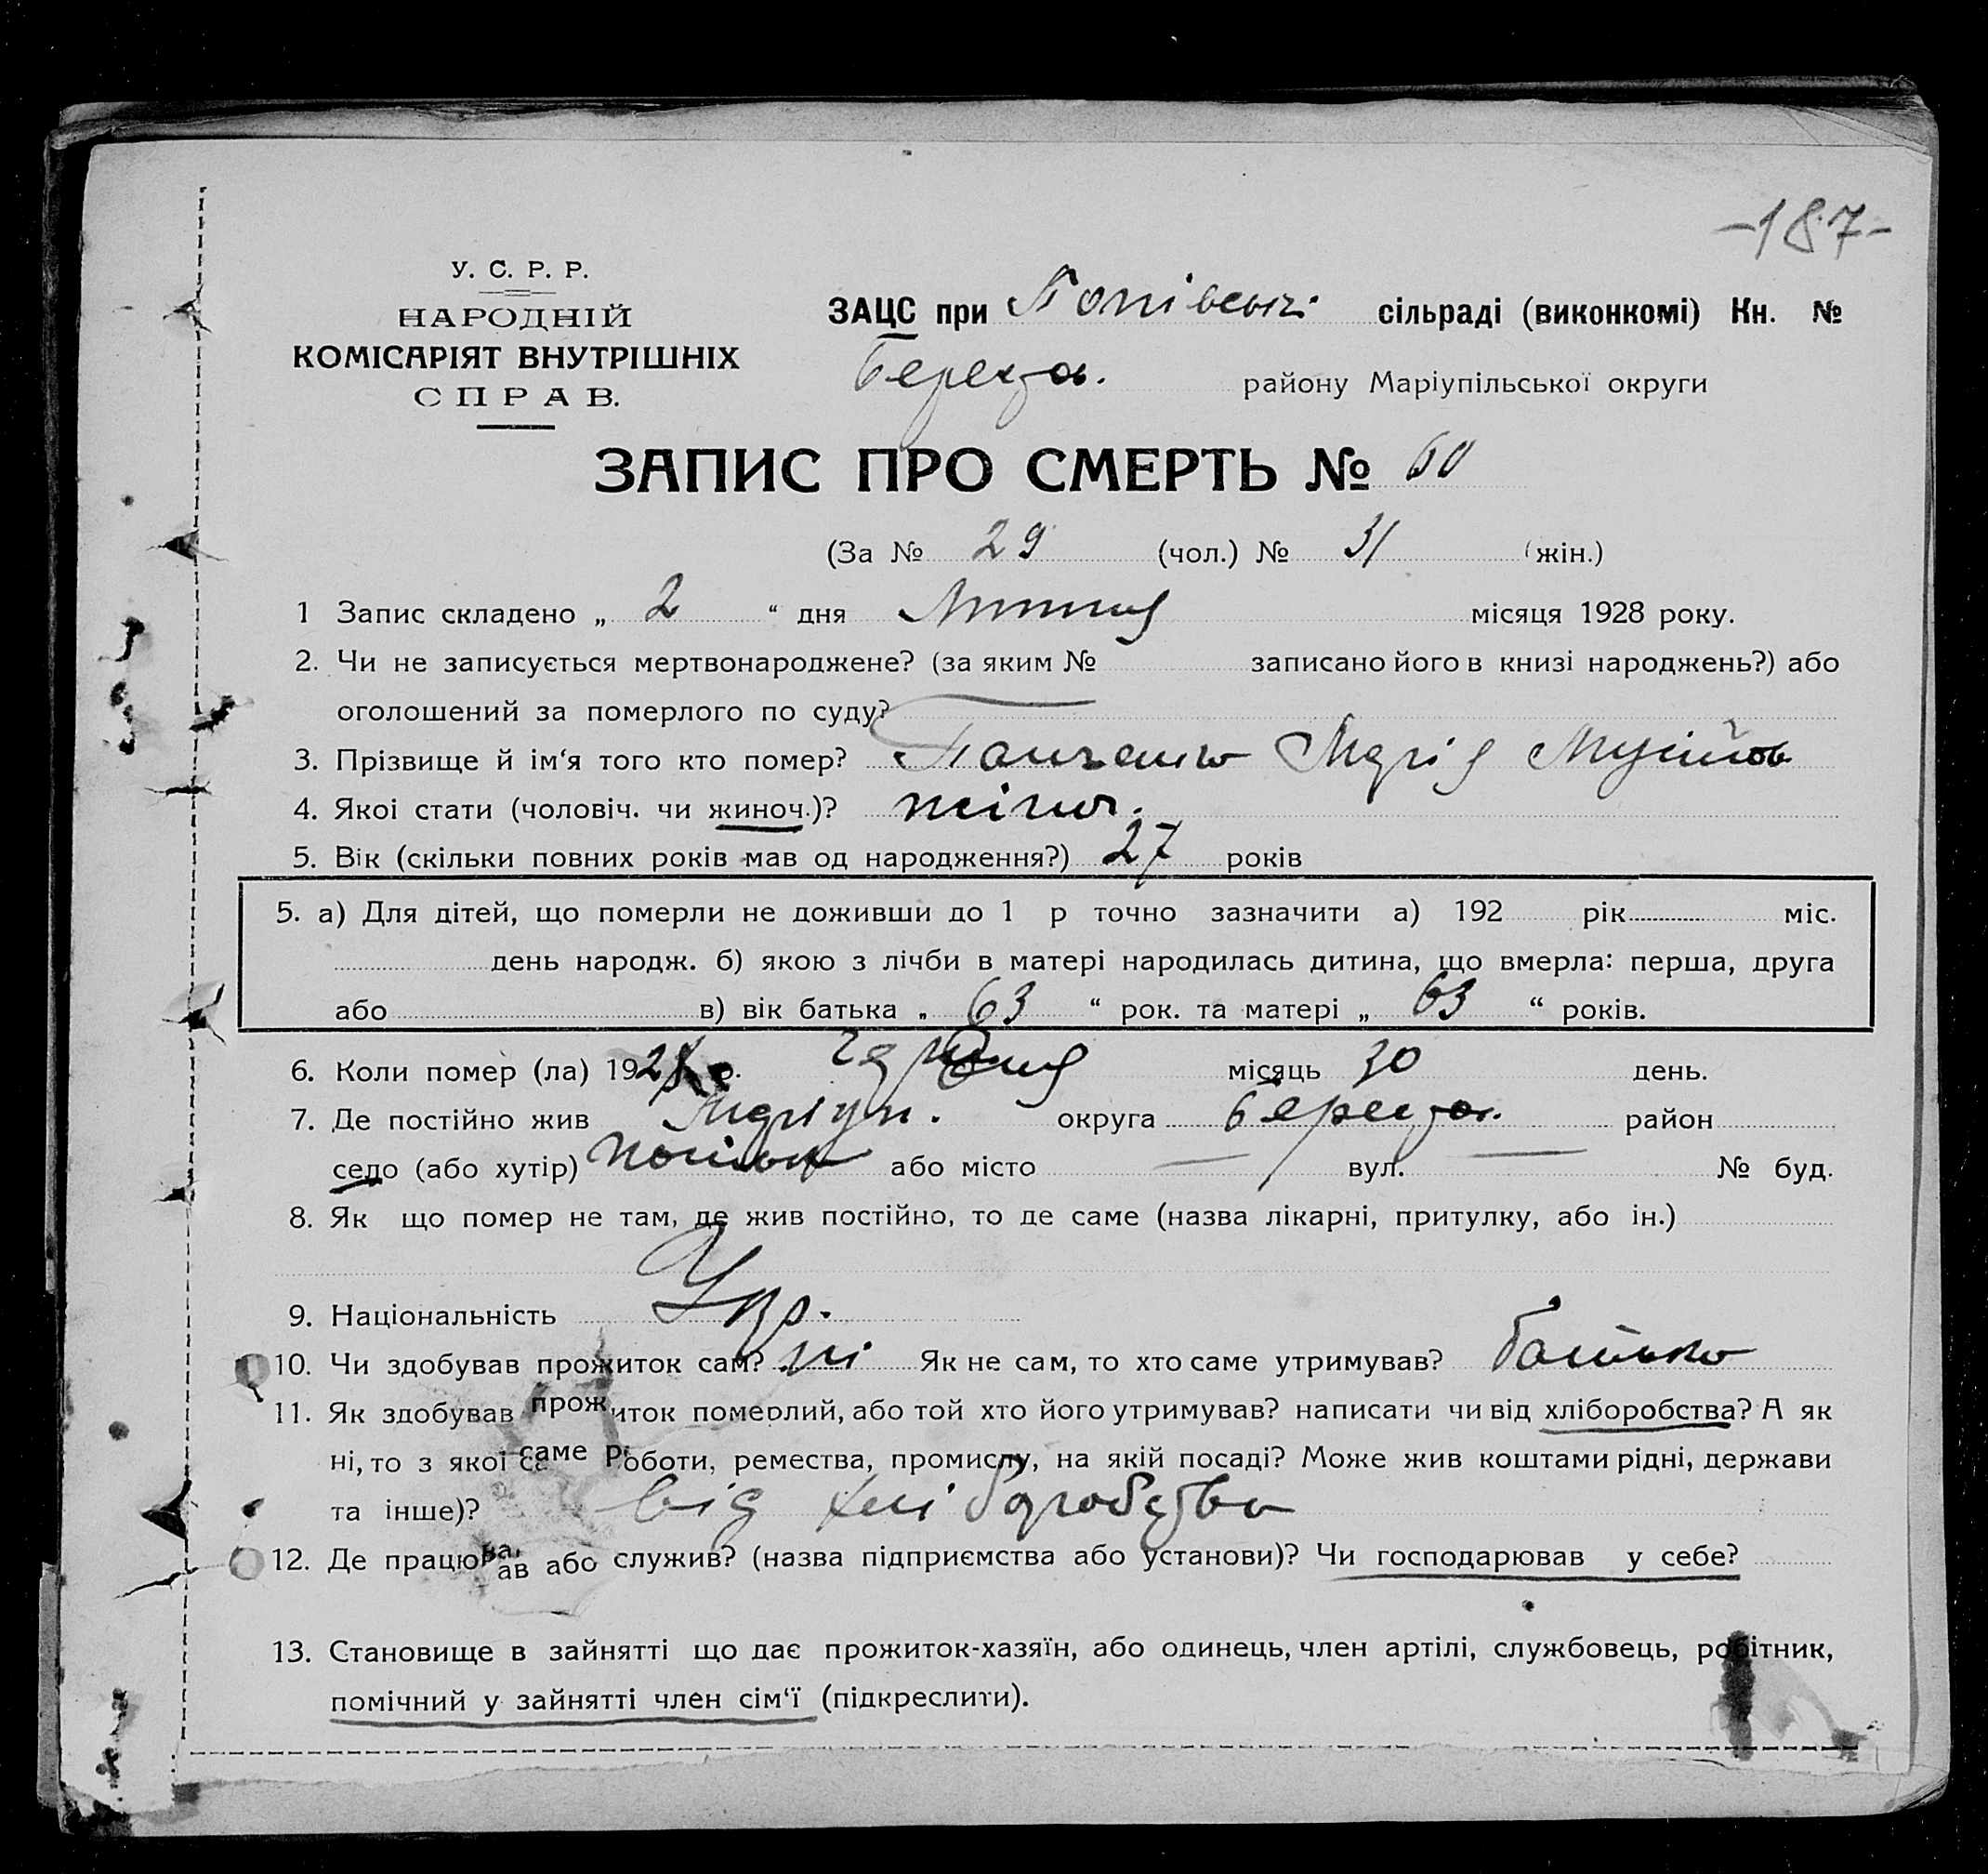 -187-
У. С. Р. Р.
НАРОДНІЙ
КОМІСАРІЯТ ВНУТРІШНІХ
СПРАВ.
ЗАЦС при сільраді (виконкомі) Кн. №
району Маріупільської округи
ЗАПИС ПРО СМЕРТЬ № 60
(За № 29 (чол.) № 31 (жін.)
1 Запис складено „ 2 “ дня Липня місяця 1928 року.
2. Чи не записується мертвонароджене? (за яким № записано його в книзі народжень?) або
оголошений за померлого по суду?
3. Прізвище й ім‘я того кто помер? Панченко Марія
4. Якої стати (чоловіч. чи жиноч.)? жіноч.
5. Вік (скільки повних років мав од народження?) 27 років
5. а) Для дітей, що померли не доживши до 1 р точно зазначити а) 192 рік міс.
день народж. б) якою з лічби в матері народилась дитина, що вмерла: перша, друга
або в) вік батька „ 63 “ рок. та матері „ 63 “ років.
6. Коли помер (ла) 1928 р. місяць 30 день.
7. Де постійно жив Маріуп. округа район
село (або хутір) або місто — вул. — № буд.
8. Як що помер не там, де жив постійно, то де саме (назва лікарні, притулку, або ін.)
9. Національність Укр.
10. Чи здобував прожиток сам? ні Як не сам, то хто саме утримував? Батько
11. Як здобував прожиток померлий, або той хто його утримував? написати чи від хліборобства? А як
ні, то з якої саме роботи, ремества, промислу, на якій посаді? Може жив коштами рідні, держави
та інше)? від хліборобства
12. Де працював або служив? (назва підприємства або установи)? Чи господарював у себе?
13. Становище в зайнятті що дає прожиток-хазяїн, або одинець, член артілі, службовець, робітник,
помічний у зайнятті член сім‘ї (підкреслити).